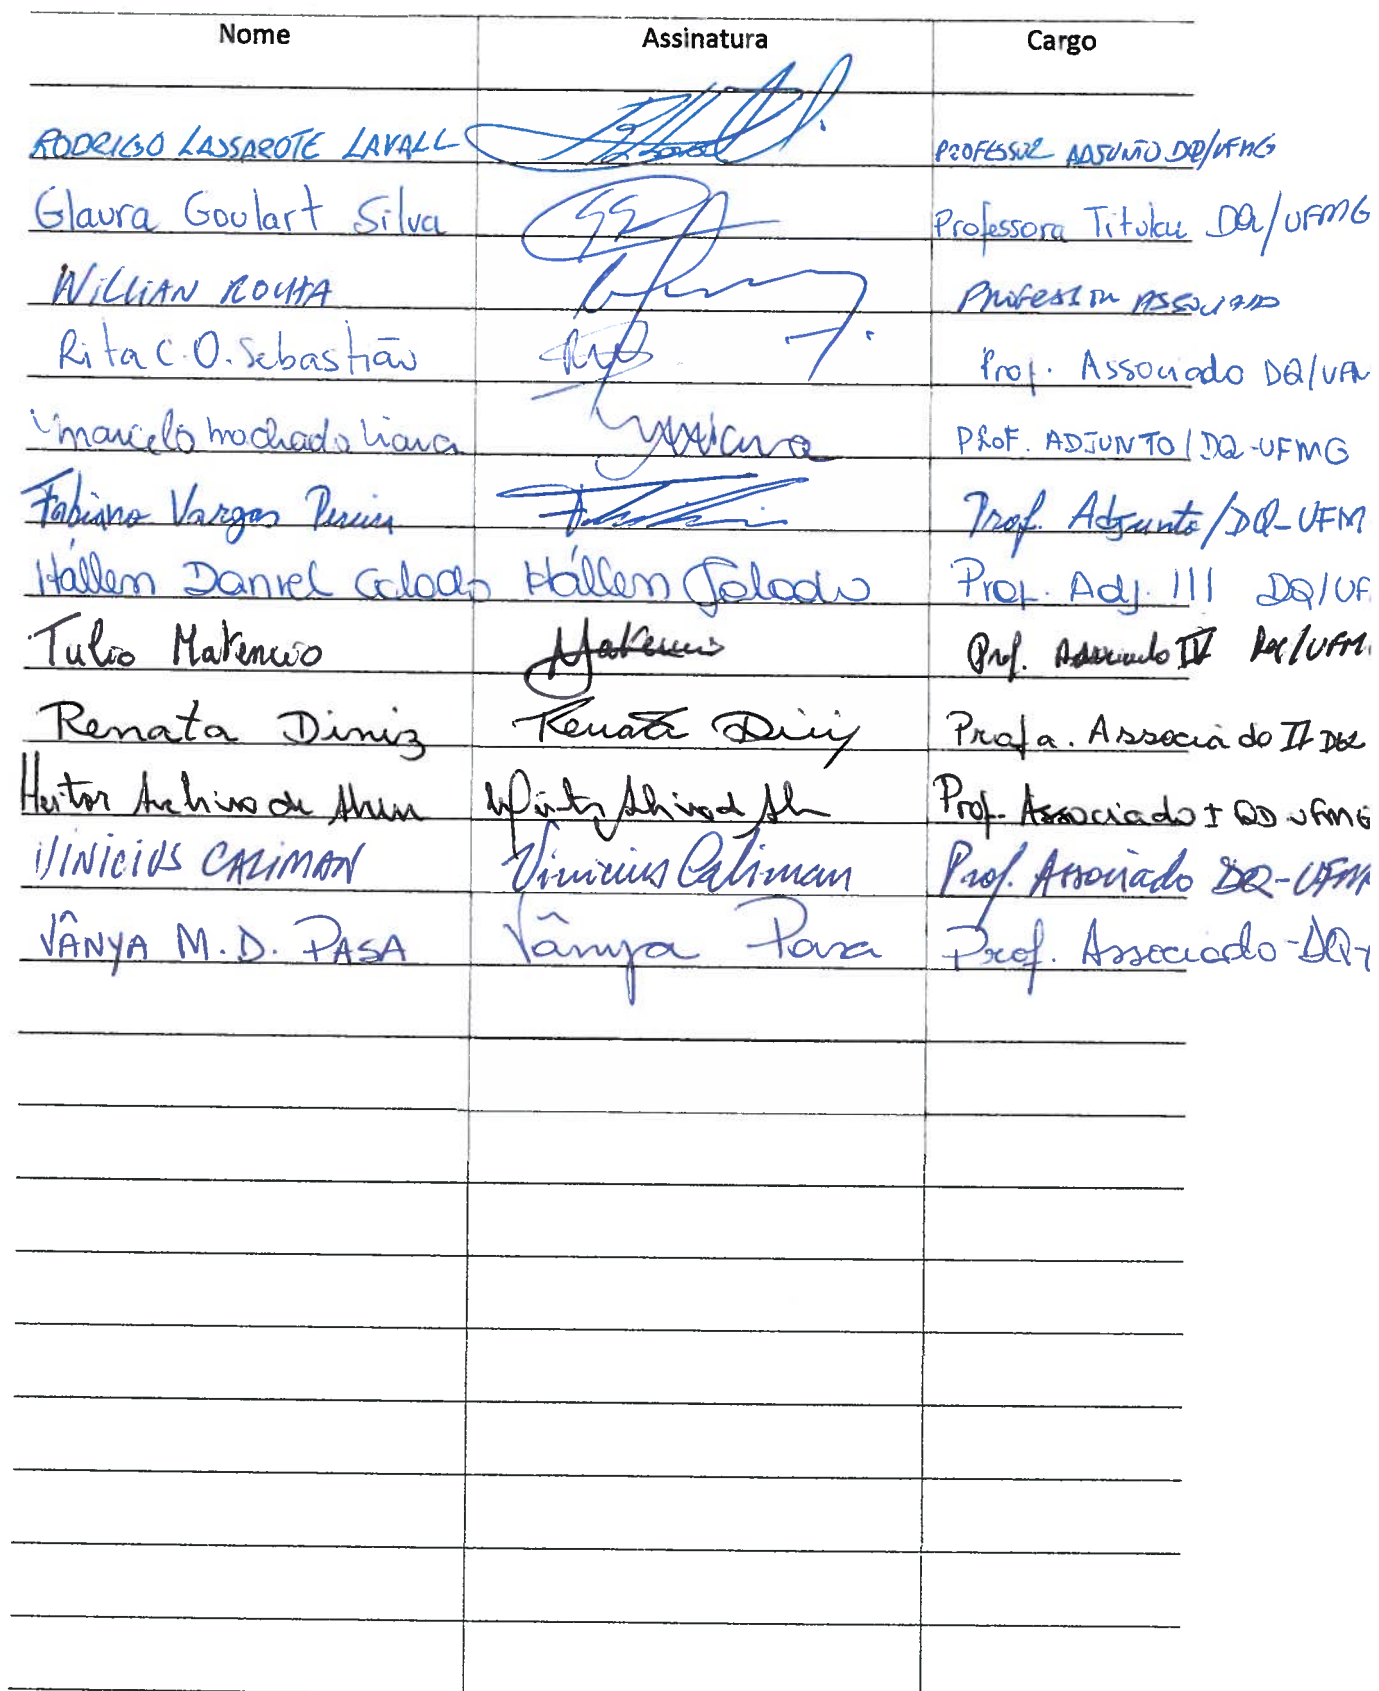 Nome Assinatura Cargo
RODRIGO LASSAROTE LAVALL PROFESSOR ADJUNTO DQ/UFMG
Glaura Goulart Silva Professora Titular DQ/UFMG
WILLIAN ROCHA PROFESSOR ASSOCIADO
Rita C. O. Sebastião Prof. Associado DQ/UFM
Marcelo Machado Viana Viana PROF. ADJUNTO/DQ-UFMG
Fabiano Vargas Pereira Prof. Adjunto/DQ-UFM
Hállen Daniel Calado Hállen Calado Prof. Adj. III DQ/UF
Tulio Matencio Matencio Prof. Associado IV DQ/UFM
Renata Diniz Renata Diniz Profa. Associado II DQ
Heitor Avelino de Abreu Heitor Avelino de Prof. Associado I QD UFMG
VINICIUS CALIMAN Vinicius Caliman Prof. Associado DQ-UFM
VÂNYA M. D. PASA Vânya Pasa Prof. Associado-DQ-